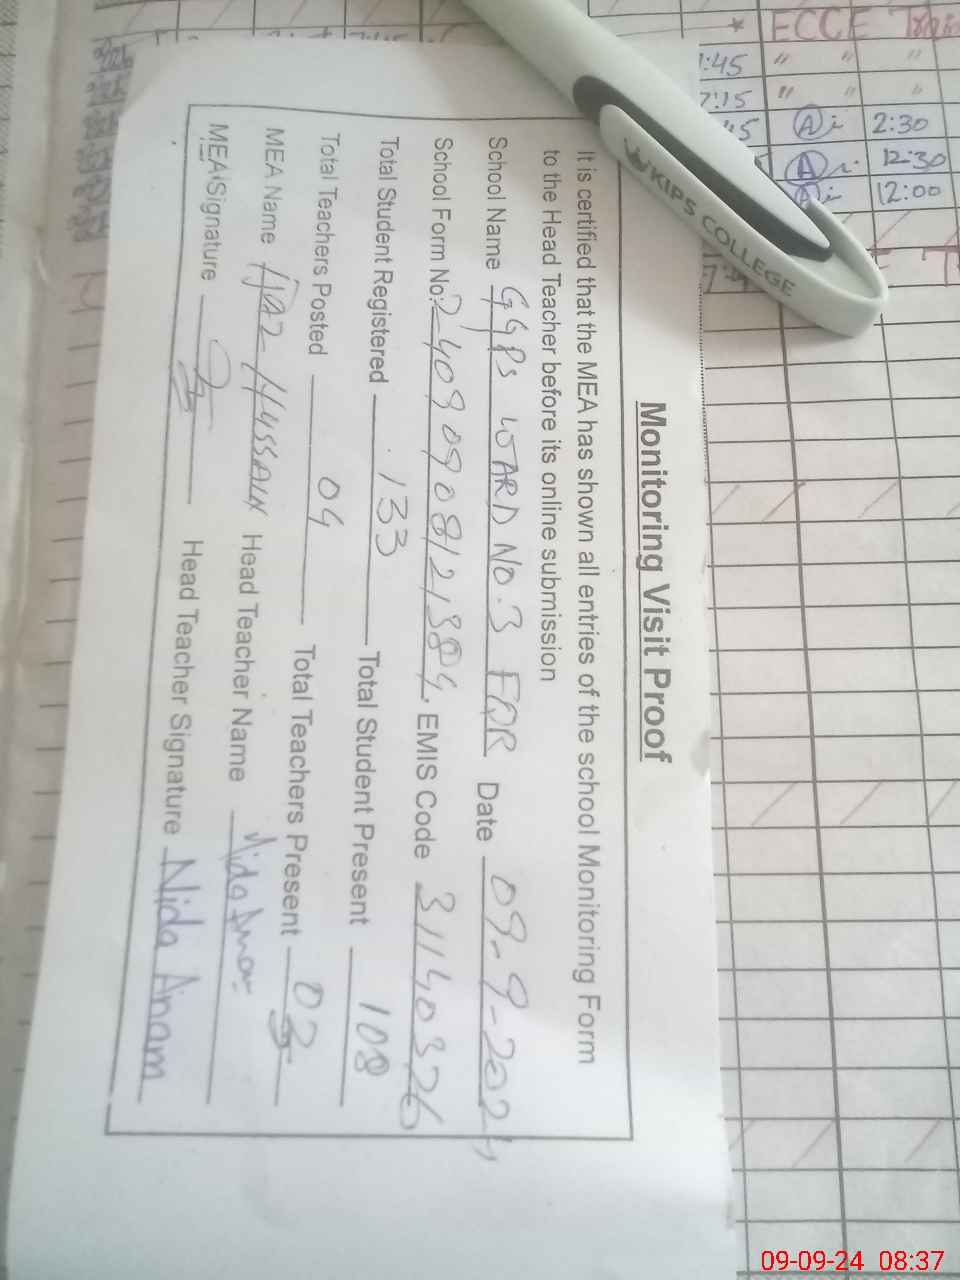 Monitoring Visit Proof
It is certified that the MEA has shown all entries of the school Monitoring Form
to the Head Teacher before its online submission
School Name GGPS WARD NO.3 Date 09-9-202
School Form No: EMIS Code 31140326
Total Student Registered 133 Total Student Present 108
Total Teachers Posted 04 Total Teachers Present 03
MEA Name IJAZ HUSSAIN Head Teacher Name Nida
MEA Signature Head Teacher Signature Nida Anam
KIPS COLLEGE
* ECCE
1:45 " " "
7:15 " " "
45 A 2:30
A 12:30
A 12:00
09-09-24 08:37